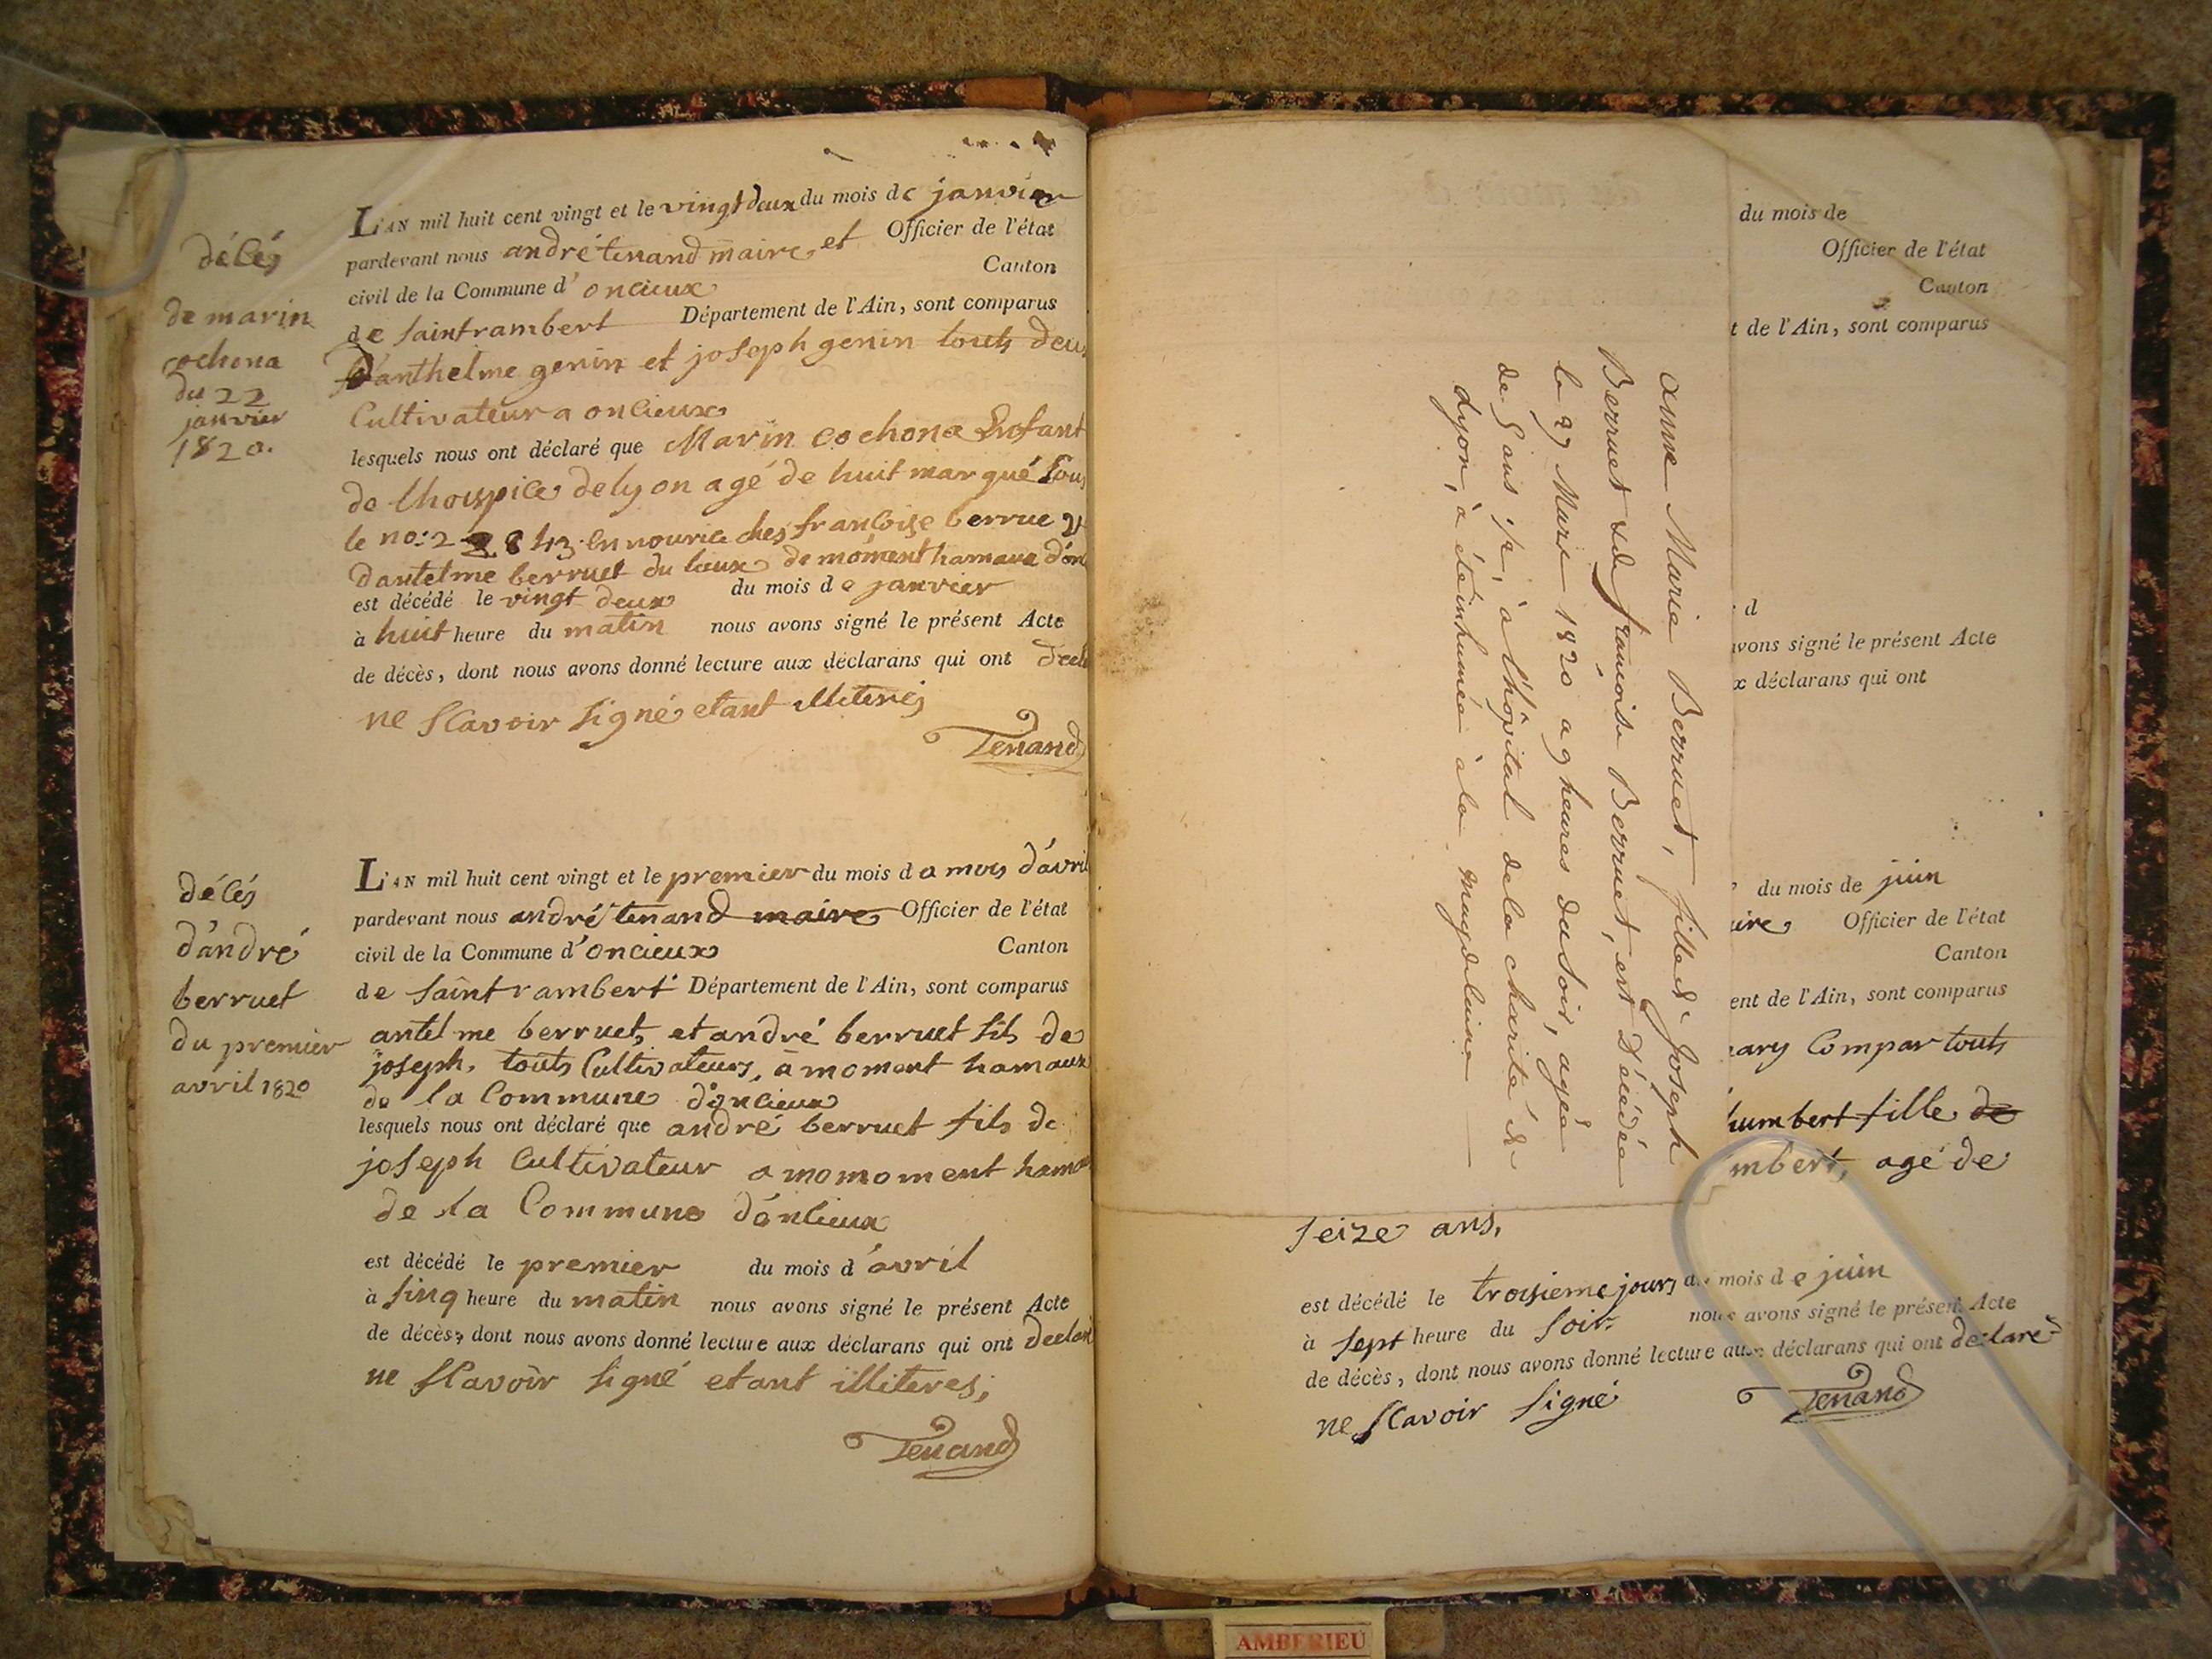 décés
de marin
cochona
du 22
janvier
1820.
L'AN mil huit cent vingt et le vingt deux du mois de janvier
pardevant nous andré tenand maire et Officier de l'état
civil de la Commune d'oncieux Canton
de saintrambert Département de l'Ain, sont comparus
D'anthelme genin et joseph genin touts deux
Cultivateur a oncieux
lesquels nous ont déclaré que Marin cochona Enfant
de lhospice de lyon agé de huit marqué sous
le no: en nourice ches françoise berrue
d'antelme berruet du lieux de moment hamaux d'on
est décédé le vingt deux du mois de janvier
à huit heure du matin nous avons signé le présent Acte
de décès, dont nous avons donné lecture aux déclarans qui ont decla
ne scavoir signé etant illiterés
Tenand
décés
d'andré
berruet
du premier
avril 1820
L'AN mil huit cent vingt et le premier du mois d a mois d'avril
pardevant nous andré tenand maire Officier de l'état
civil de la Commune d'oncieux Canton
de saintrambert Département de l'Ain, sont comparus
antelme berruet, et andré berruet fils de
joseph, touts Cultivateurs, a moment hamaux
de la Commune d'oncieux
lesquels nous ont déclaré que andré berruet fils de
joseph Cultivateur a momoment hamau
de la Commune d'oncieux
est décédé le premier du mois d'avril
à sinq heure du matin nous avons signé le présent Acte
de décès, dont nous avons donné lecture aux déclarans qui ont declaré
ne scavoir signé etant illiteres;
Tenand
anne Marie Berruet, fille de Joseph
Berruet et de françoise Berruet, est décédée
le 29 Mars 1820 a 9 heures du soir, agée
de 5 ans 1/2, à l'hôpital de la charité de
Lyon, a été inhumée à la Magdeleine
du mois de
Officier de l'état
Canton
t de l'Ain, sont comparus
d
avons signé le présent Acte
x déclarans qui ont
du mois de juin
aire Officier de l'état
Canton
ent de l'Ain, sont comparus
ary Compar touts
humbert fille de
mbert, agé de
seize ans,
est décédé le troisieme jours du mois de juin
à sept heure du soir nous avons signé le présent Acte
de décès, dont nous avons donné lecture aux déclarans qui ont declaré
ne scavoir signé
Tenand
AMBERIEU